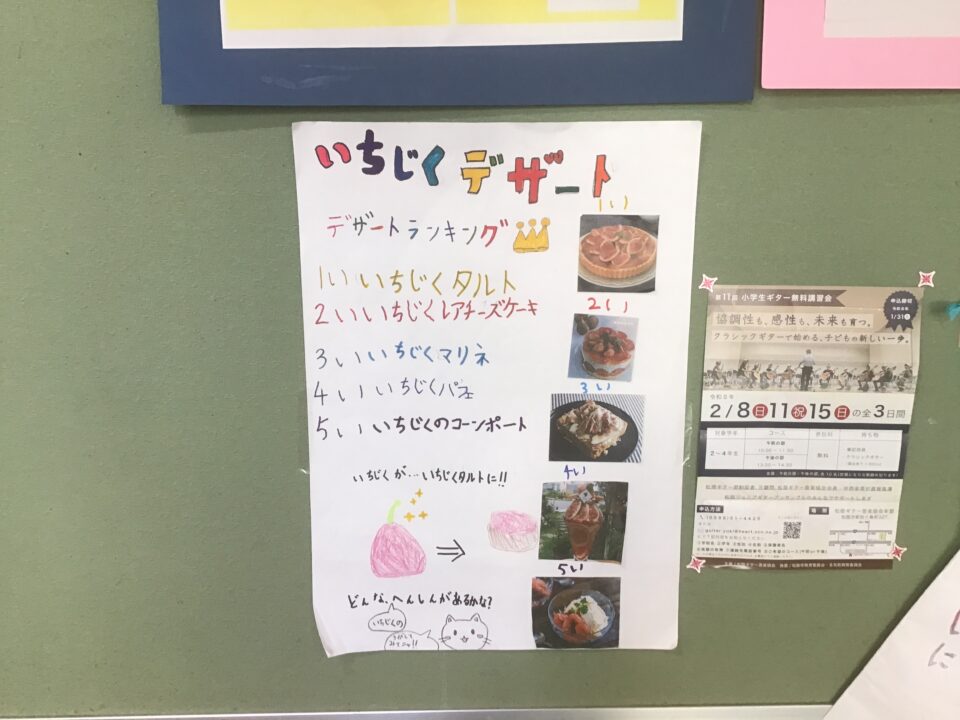 いちじくデザート
デザートランキング
1い いちじくタルト
2い いちじくレアチーズケーキ
3い いちじくマリネ
4い いちじくパフェ
5い いちじくのコーンポート
1い
2い
3い
4い
5い
いちじくが…いちじくタルトに!!
どんな、へんしんがあるかな?
いちじくの
さがして
みてニャ!!
第11回 小学生ギター無料講習会
申込締切
1/31
協調性も、感性も、未来も育つ。
クラシックギターで始める、子どもの新しい一歩。
2/8日11祝15日の全3日間
対象学年 コース 参加料 持ち物
2～4年生
午前の部
午後の部
無料
クラシックギター
申込方法
場所
に